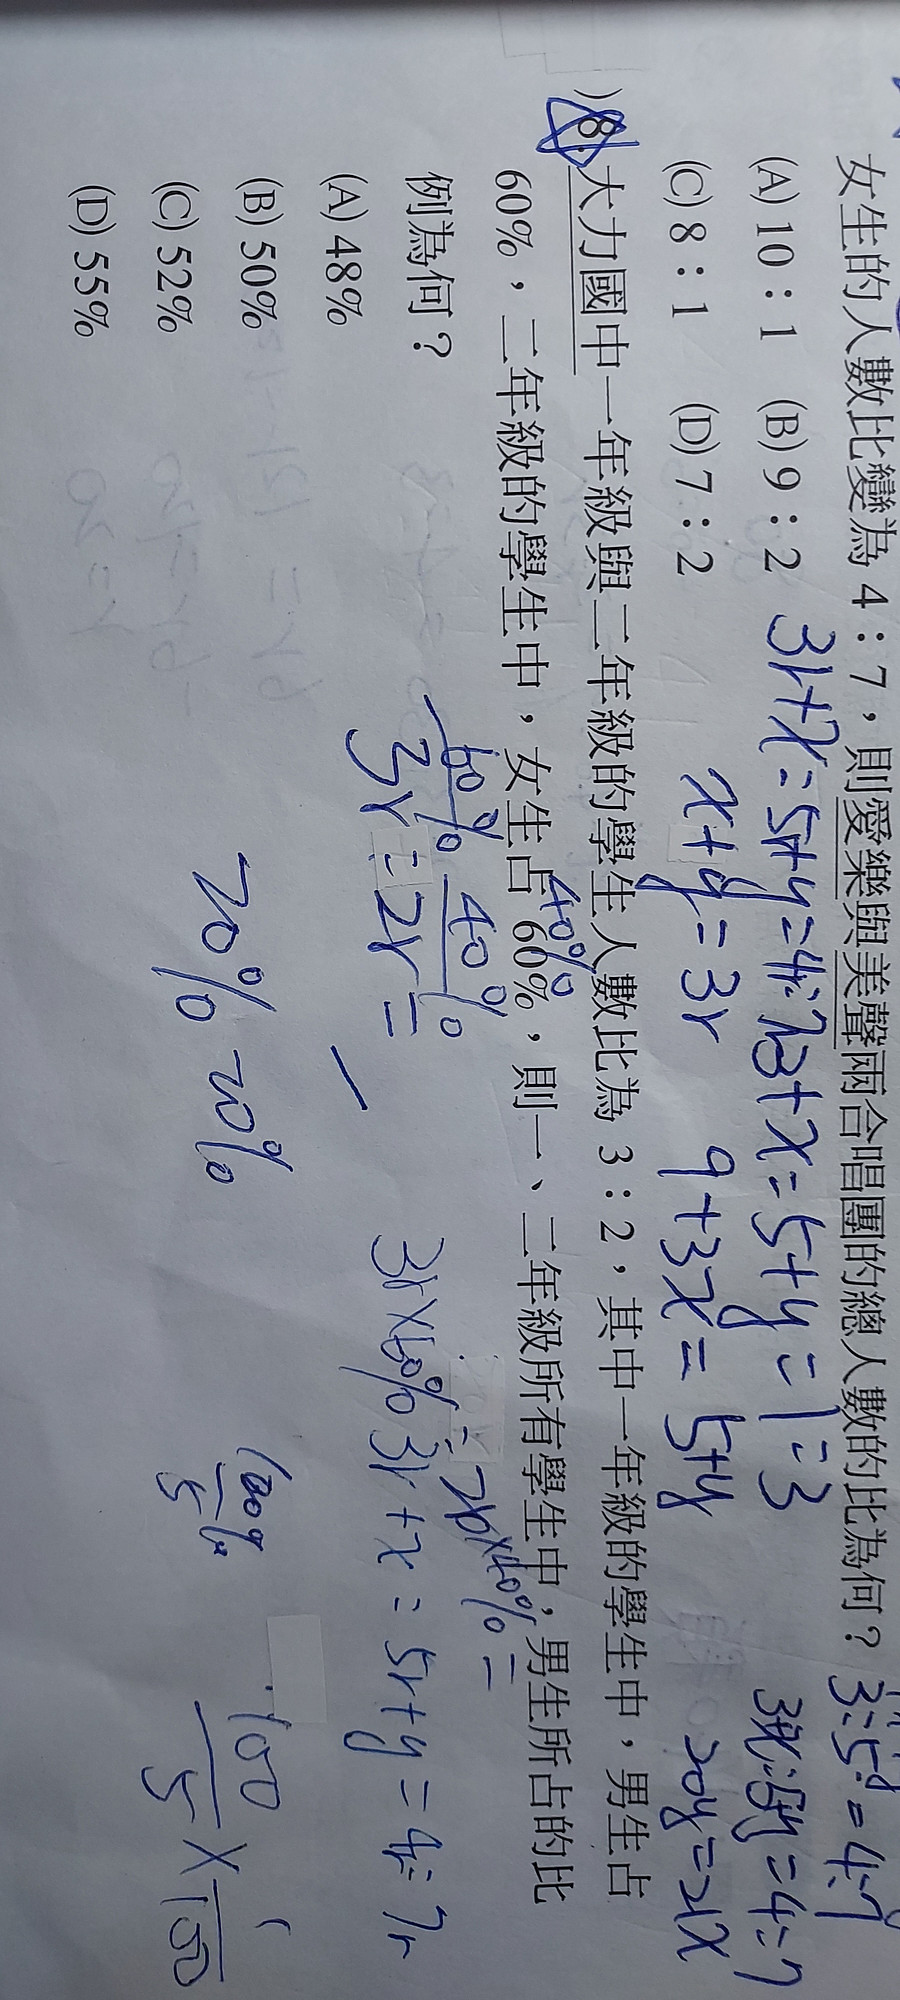 女生的人數比變為 4：7，則愛樂與美聲兩合唱團的總人數的比為何？
(A) 10：1 (B) 9：2
(C) 8：1 (D) 7：2
3r+x=5r+y=4:7
3+x=5+y=1=3
x+y=3r
9+3x=5+y
20y=21x
)8. 大力國中一年級與二年級的學生人數比為 3：2，其中一年級的學生中，男生占
40%
60%，二年級的學生中，女生占 60%，則一、二年級所有學生中，男生所占的比
例為何？
60% 40%
3r=2r=
3r+x=5r+y=4:7r
(A) 48%
(B) 50%
(C) 52%
(D) 55%
20% 20%
100
5